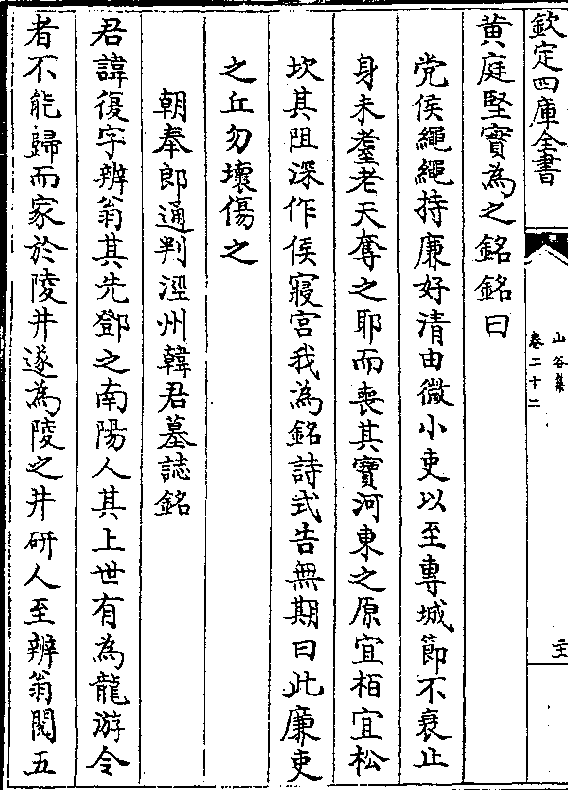 欽定四庫全書
山谷集
卷二十二
黄庭堅實為之銘銘曰
党侯繩繩持廉好清由微小吏以至専城節不衰止
身未耋老天奪之耶而喪其寳河東之原宜栢宜松
坎其阻深作侯寢宫我為銘詩式告無期曰此廉吏
之丘勿壞傷之
朝奉郎通判涇州韓君墓誌銘
君諱復字辨翁其先鄧之南陽人其上世有為龍游令
者不能歸而家於陵井遂為陵之井研人至辨翁閲五